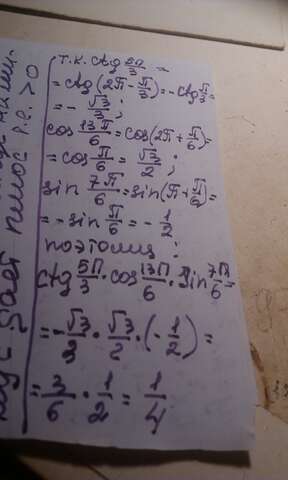 т.к. ctg 5π/3 =
= ctg(2π - π/3) = -ctg π/3 =
= - √3/3 ;
cos 13π/6 = cos(2π + π/6) =
= cos π/6 = √3/2 ;
sin 7π/6 = sin(π + π/6) =
= - sin π/6 = - 1/2
поэтому :
ctg 5π/3 · cos 13π/6 · sin 7π/6 =
= - √3/3 · √3/2 · (- 1/2) =
= 3/6 · 1/2 = 1/4
дает плюс
т.е. > 0